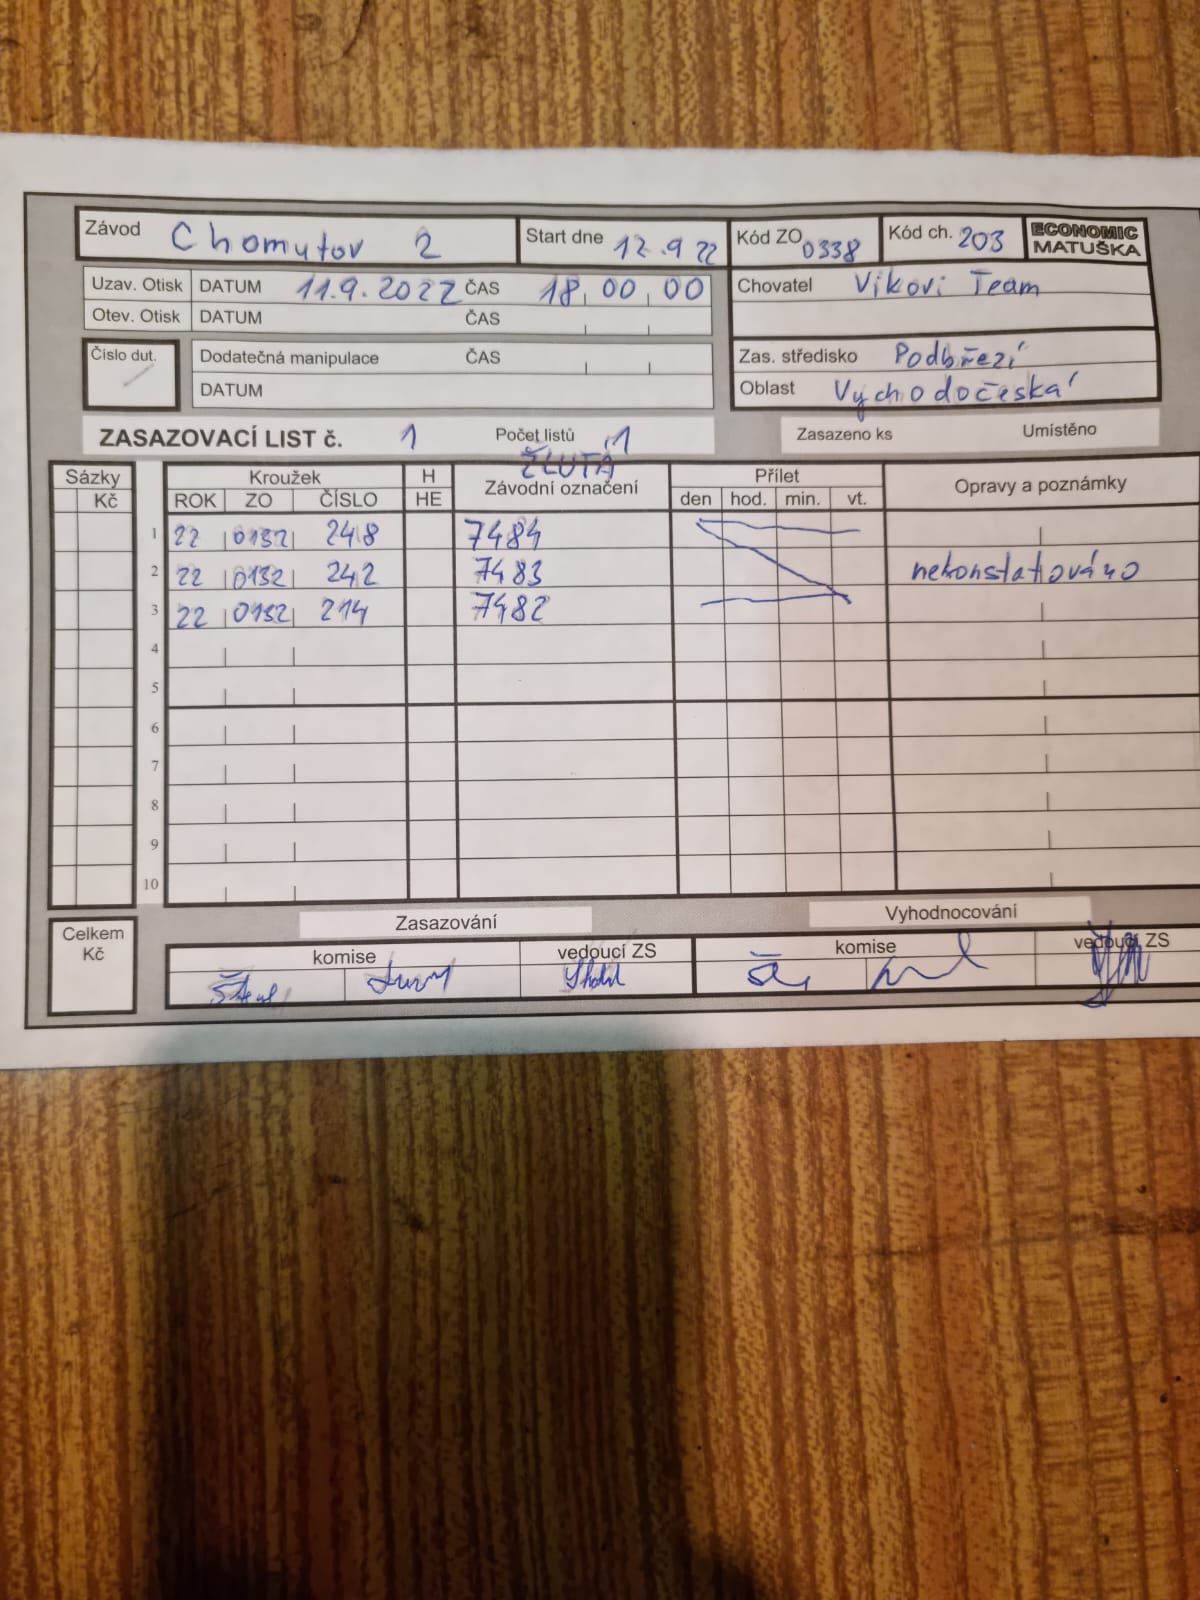 Závod Chomutov 2 Start dne 12.9 22 Kód ZO 0338 Kód ch. 203 ECONOMIC MATUŠKA
Uzav. Otisk DATUM 11.9.2022 ČAS 18 00 00 Chovatel Víkovi Team
Otev. Otisk DATUM ČAS
Číslo dut. Dodatečná manipulace ČAS Zas. středisko Podbřezí
DATUM Oblast Východočeská
ZASAZOVACÍ LIST č. 1 Počet listů 1 Zasazeno ks Umístěno
ŽLUTÁ
Sázky Kroužek H Závodní označení Přílet Opravy a poznámky
Kč ROK ZO ČÍSLO HE den hod. min. vt.
1 22 0132 248 7484
2 22 0132 242 7483 nekonstatováno
3 22 0132 214 7482
4
5
6
7
8
9
10
Zasazování Vyhodnocování
Celkem Kč komise vedoucí ZS komise vedoucí ZS